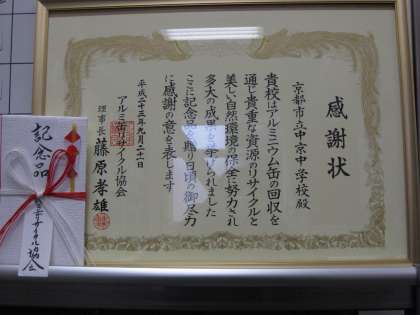 感謝状
京都市立中京中学校殿
貴校はアルミニウム缶の回収を
通じ貴重な資源のリサイクルと
美しい自然環境の保全に努力され
多大の成果を挙げられました
ここに記念品を贈り日頃の御尽力
に感謝の意を表します
平成二十三年九月二十一日
アルミ缶リサイクル協会
理事長 藤原孝雄
記念品
アルミ缶リサイクル協会